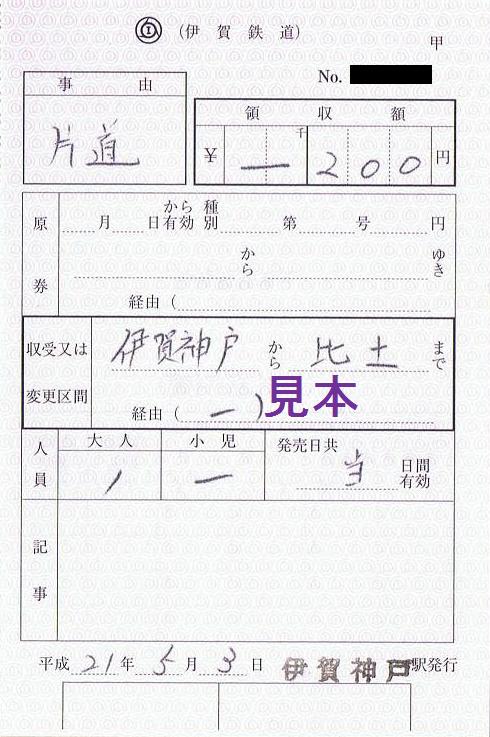 (伊賀鉄道)
甲
No.
事由
片道
領収額
千
¥ ー 200 円
原券
月 日から有効 種別 第 号 円
から ゆき
経由(
収受又は変更区間
伊賀神戸 から 比土 まで
経由(ー)
見本
人員
大人 小児 発売日共
1 ー 当 日間有効
記事
平成 21 年 5 月 3 日 伊賀神戸 駅発行